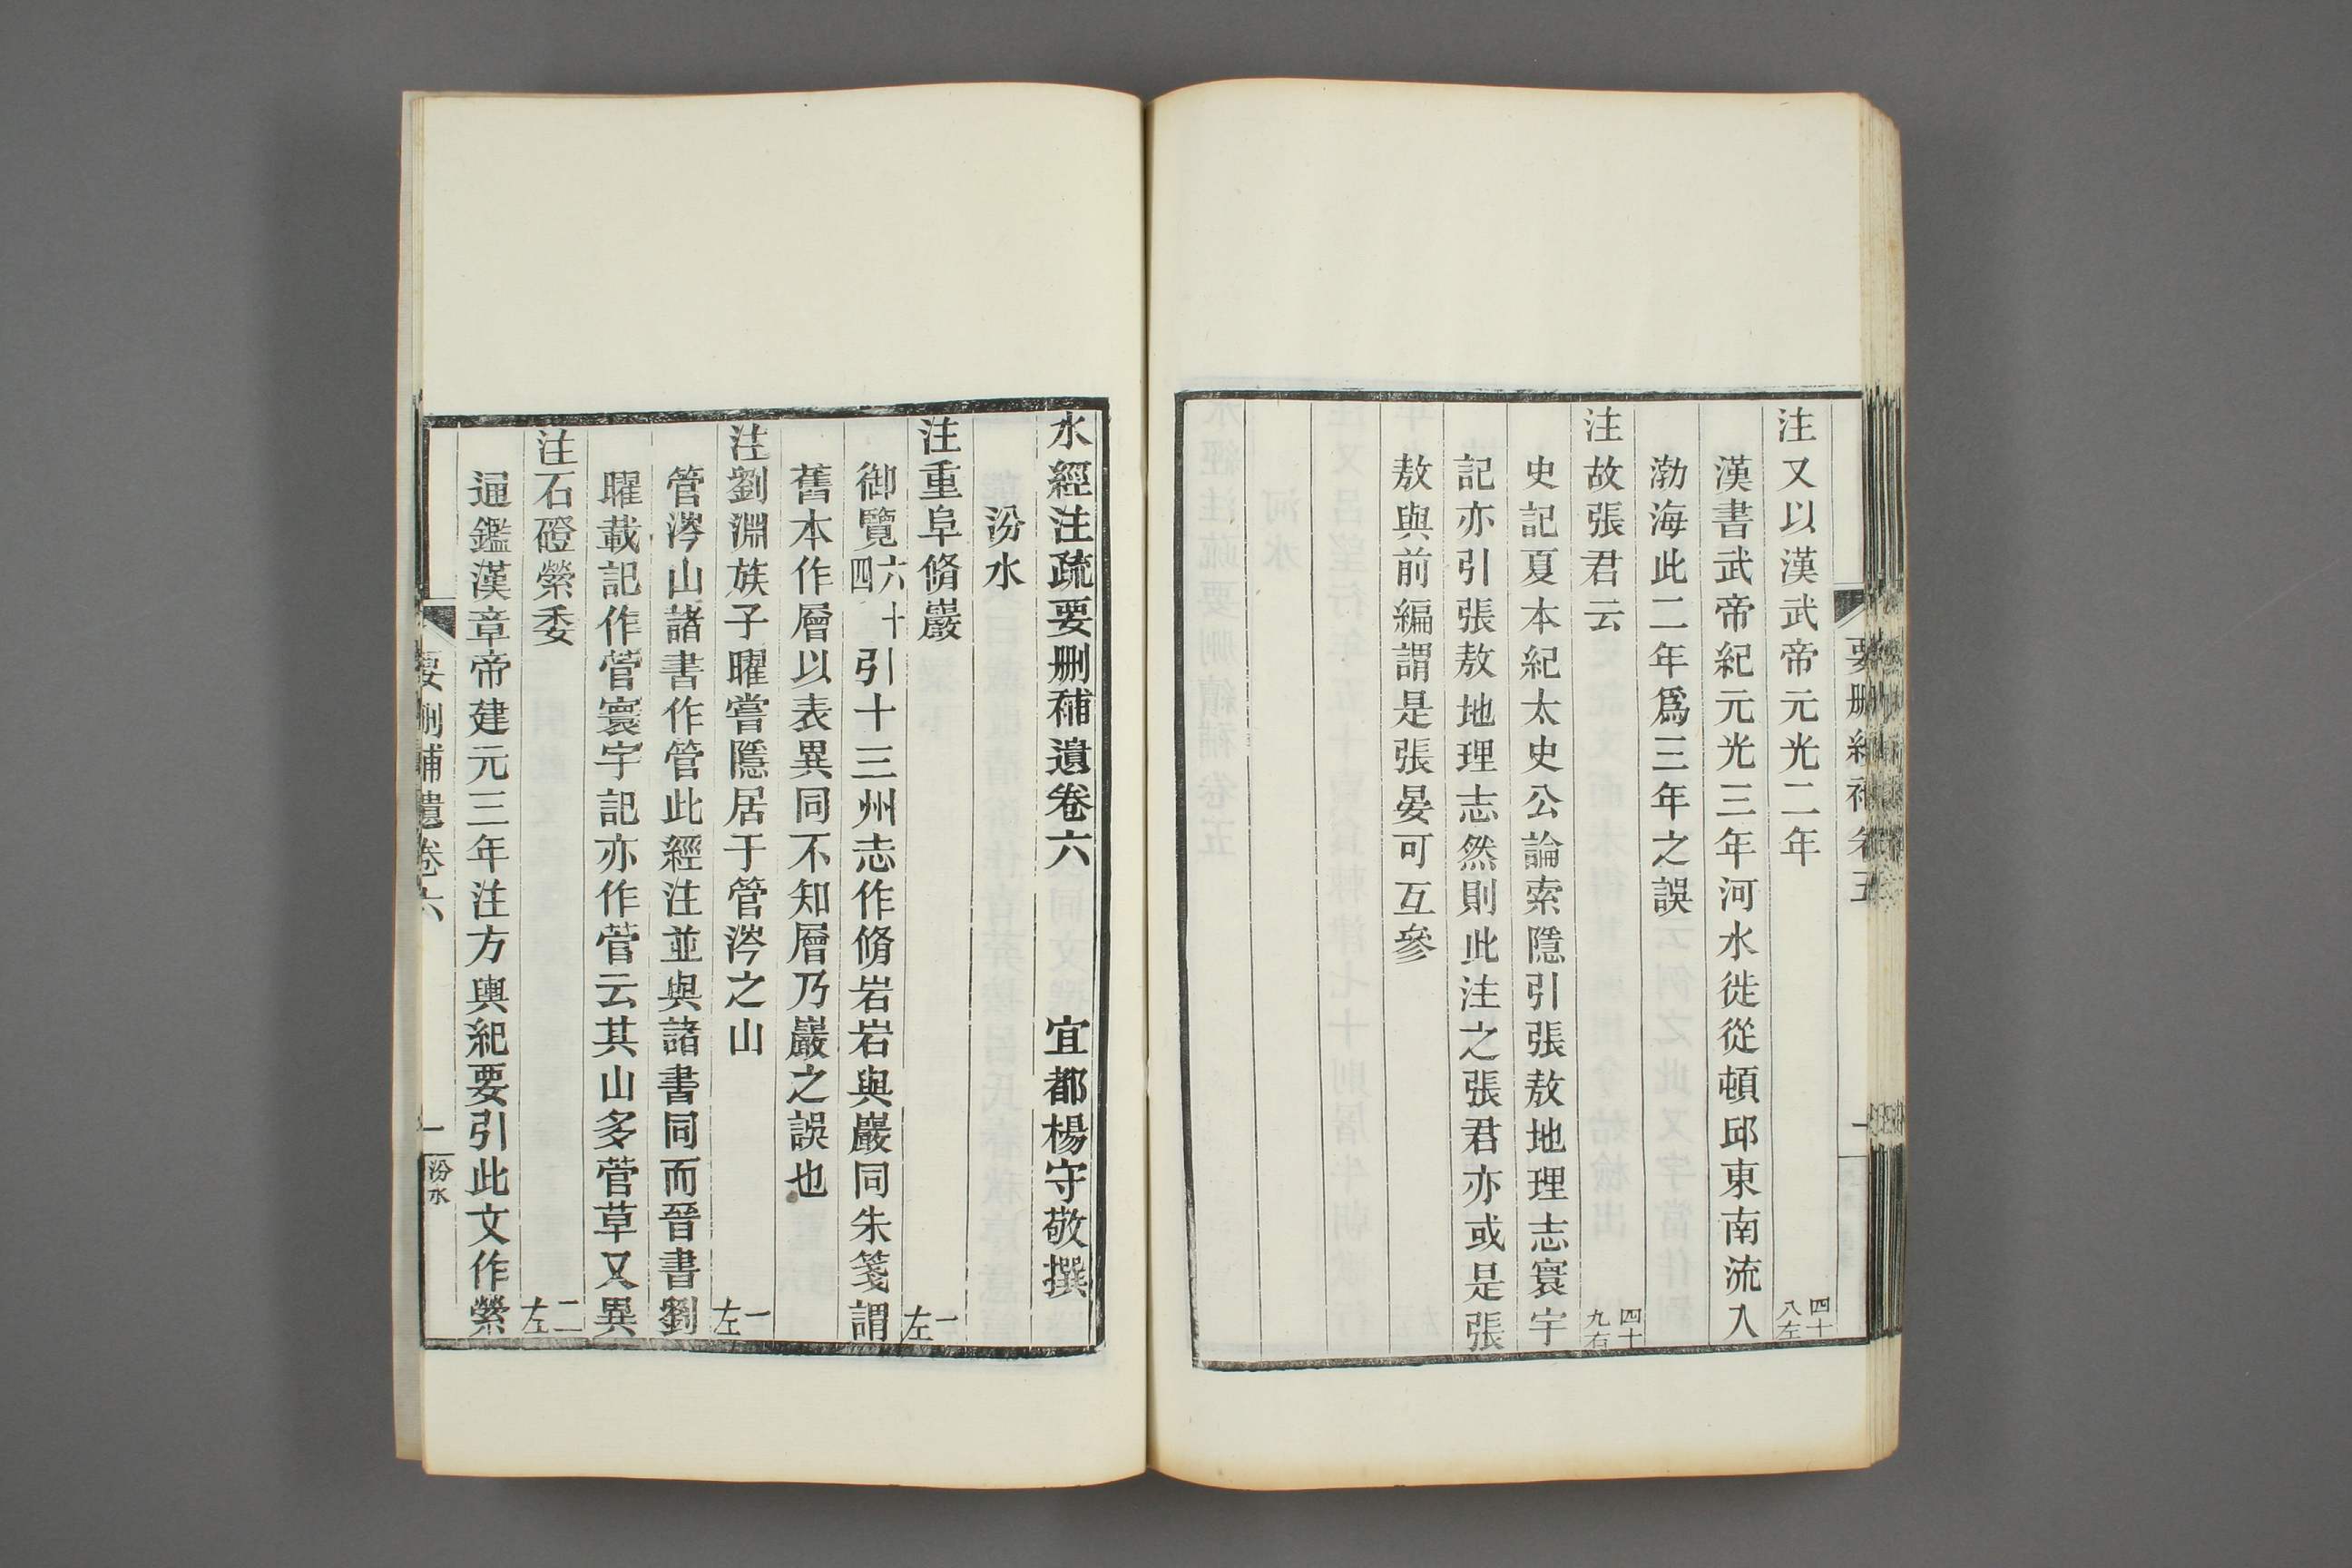 注又以漢武帝元光二年 四十八左
漢書武帝紀元光三年河水徙從頓邱東南流入
渤海此二年爲三年之誤
注故張君云 四十九右
史記夏本紀太史公論索隱引張敖地理志寰宇
記亦引張敖地理志然則此注之張君亦或是張
敖與前編謂是張晏可互參
水經注疏要删補遺卷六 宜都楊守敬撰
汾水
注重阜脩巖 一左
御覽六十四引十三州志作脩岩岩與巖同朱箋謂
舊本作層以表異同不知層乃巖之誤也
注劉淵族子曜嘗隱居于管涔之山 一左
管涔山諸書作管此經注並與諸書同而晉書劉
曜載記作菅寰宇記亦作菅云其山多菅草又異
注石磴縈委 二左
通鑑漢章帝建元三年注方輿紀要引此文作縈
要删補遺卷六 一 汾水